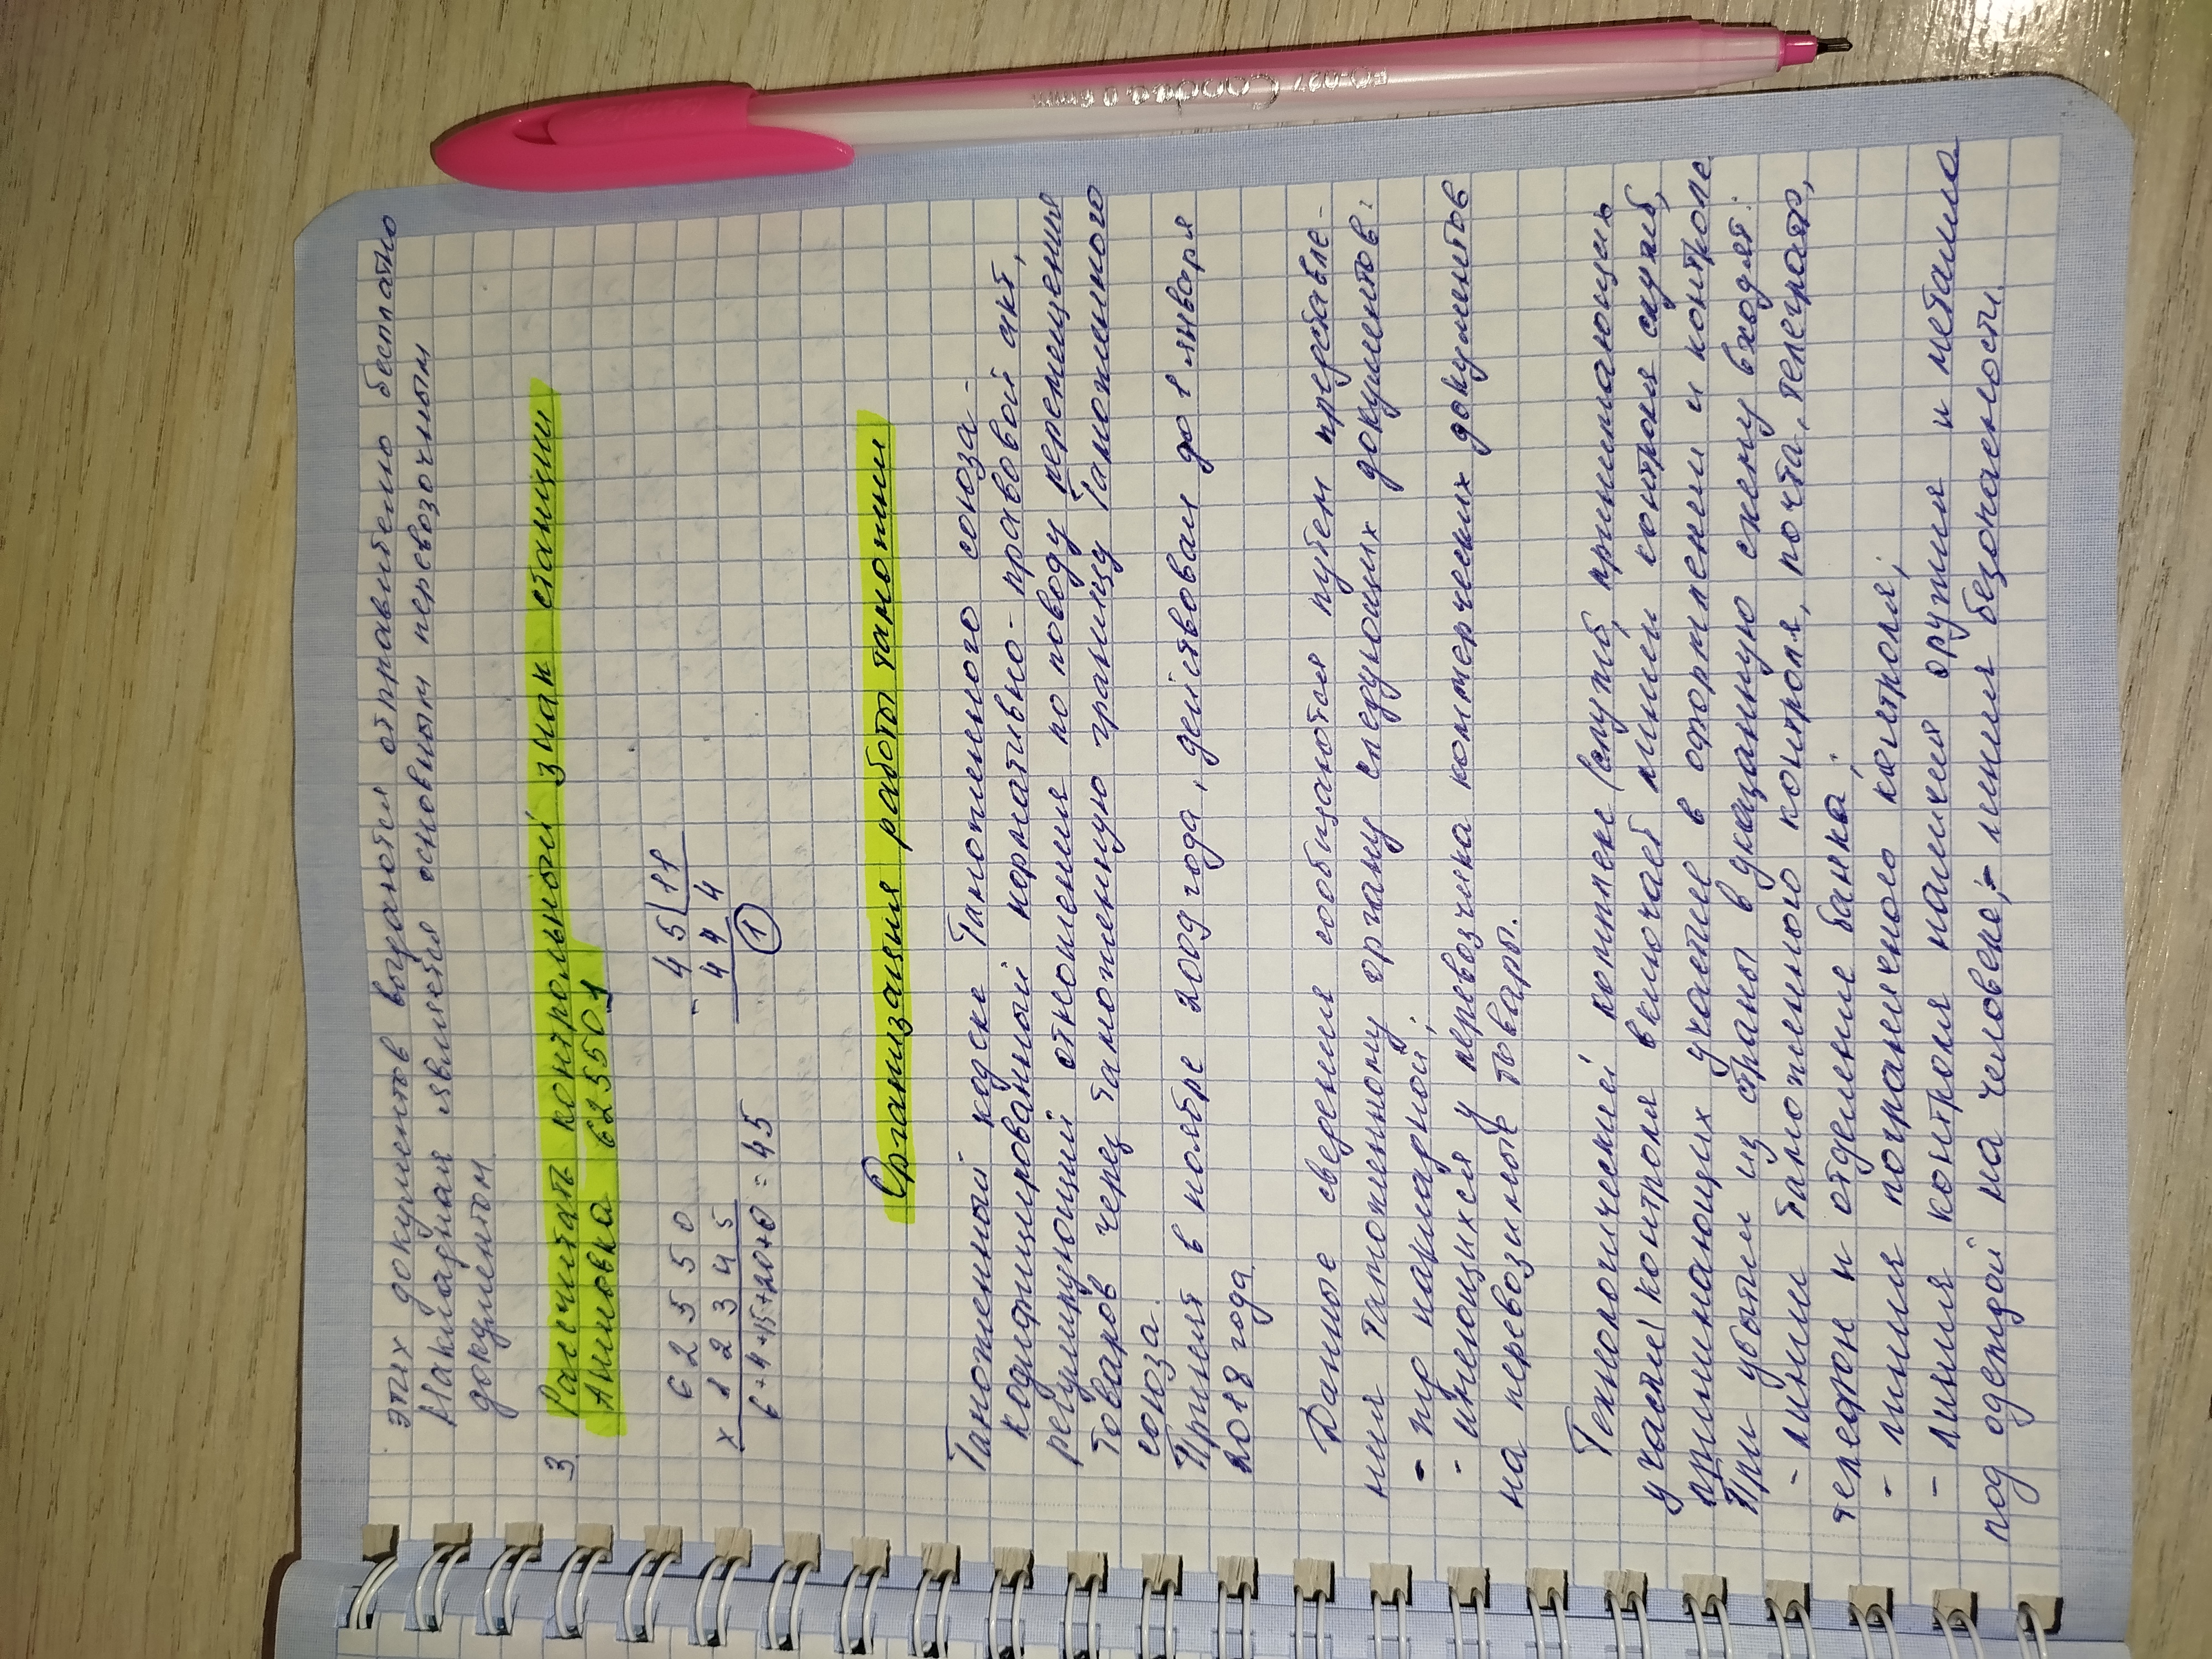 этих документов выдаются отправителю бесплатно
Накладная является основным перевозочным
документом
3 Рассчитать контрольный знак станции
Аниовка 625501
6 2 5 5 0
× 1 2 3 4 5
6+4+15+20+0 = 45
- 4 5 | 11
4 4 4
1
Организация работы таможни
Таможенный кодекс Таможенного союза -
кодифицированный нормативно-правовой акт,
регулирующий отношения по поводу перемещения
товаров через таможенную границу Таможенного
союза.
Принят в ноябре 2009 года, действовал до 1 января
2018 года
Данные сведения сообщаются путем представле-
ния таможенному органу следующих документов:
- пр накладной;
- имеющихся у перевозчика коммерческих документов
на перевозимые товары.
Технологический комплекс (служб, принимающих
участие) контроля включает линии контроля служб,
принимающих участие в оформлении и контроле
При убытии из страны в указанную схему входят:
- линии таможенного контроля, почта, телеграф,
телефон и отделение банка;
- линия пограничного контроля;
- линия контроля наличия оружия и металла
под одеждой на человеке; - линия безопасности.
Goodka 0.6mm
FO-027